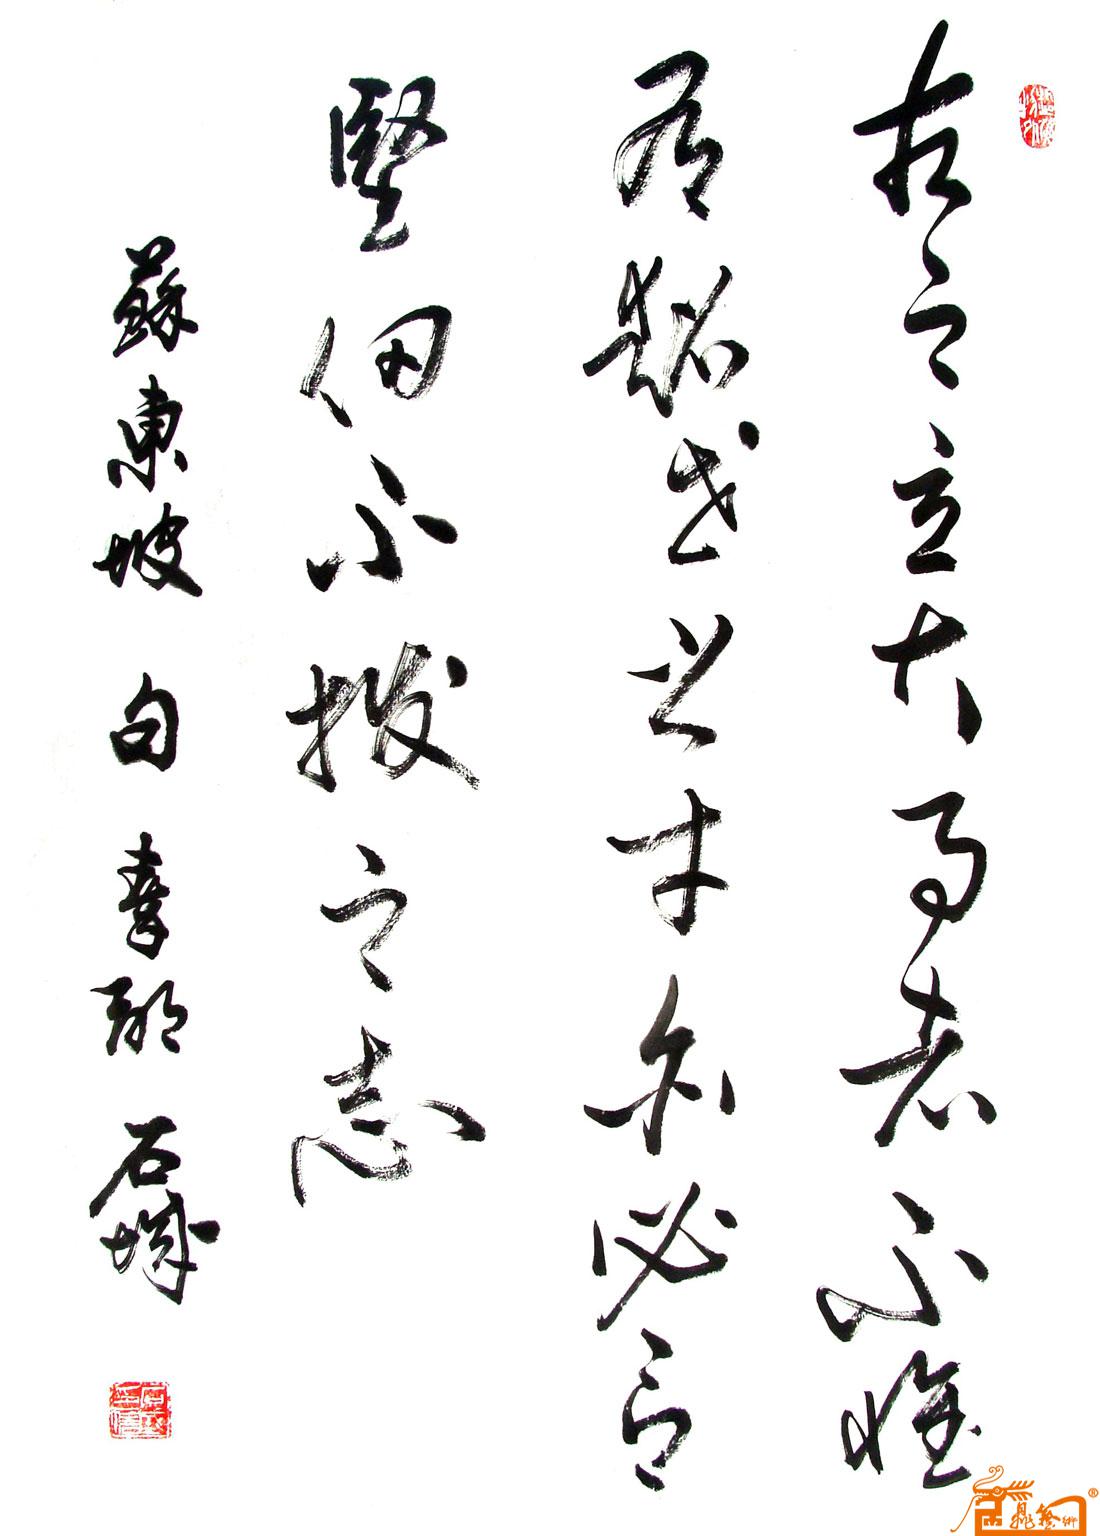 古之立大事者不惟
有超世之才亦必有
堅忍不拔之志
蘇東坡句 石城